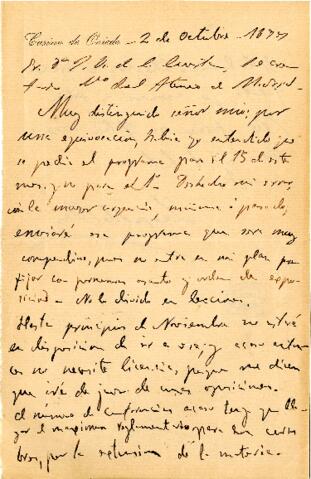 Casino de Oviedo - 2 de Octubre - 1897
Sr. Dn. de la Secre
tario del Ateneo de Madrid.
Muy distinguido señor mío; por
una equivocación, había yo entendido que
se pedía el programa para el 15 de este
mes, y no para el 1º. Deshecho mi error,
con la mayor urgencia, mañana o pasado,
enviaré ese programa que será muy
compendioso, pues no entra en mi plan
fijar con pormenores asunto y orden de expo
sición. No lo divido en lecciones.
Hasta principios de Noviembre no estaré
en disposición de ir a esa; y acaso enton
ces no necesite licencia, porque me dicen
que iré de juez de unas oposiciones.
El número de conferencias acaso tenga que lle
gar al maximum reglamentario para son
por la extension de la materia.